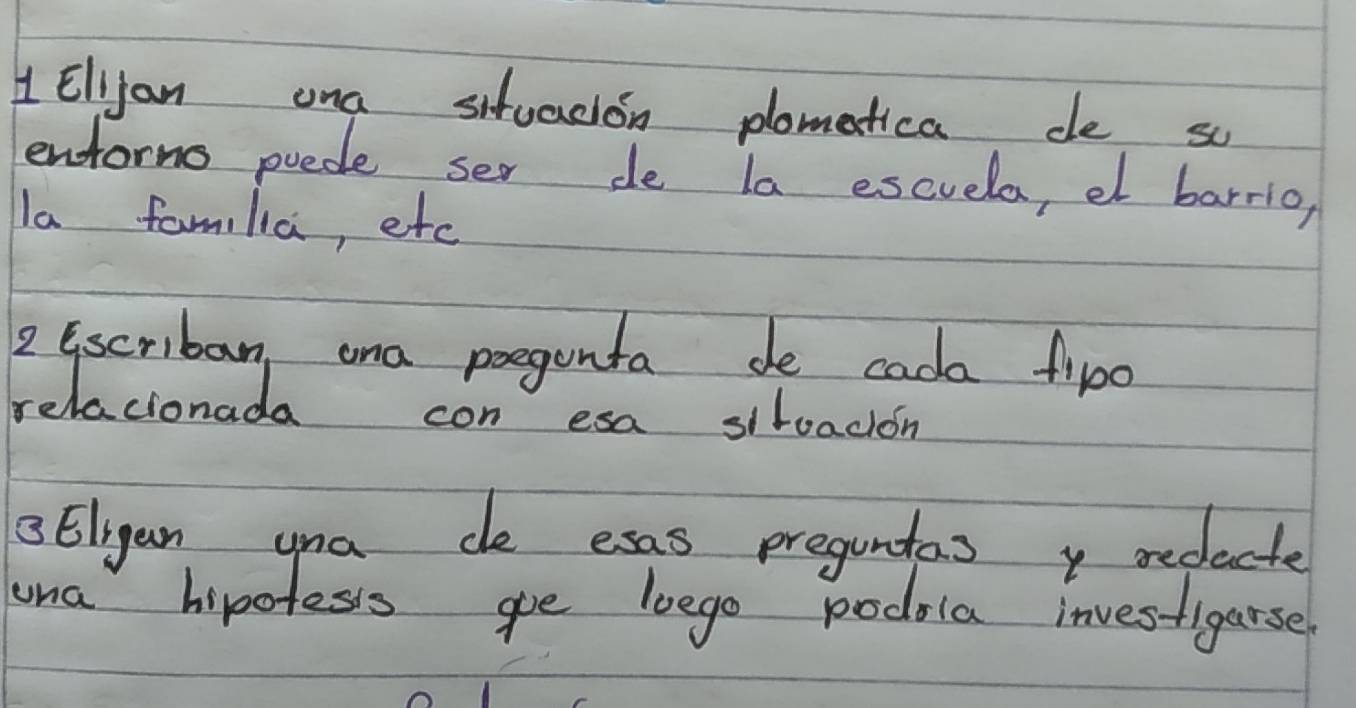 1 Elijan una situación plomatica de su
entorno puede ser de la escuela, el barrio,
la familia, etc
2 Escriban una poegunta de cada tipo
relacionada con esa situación
3 Eligan una de esas preguntas y redacte
una hipotesis que luego podria investigarse.